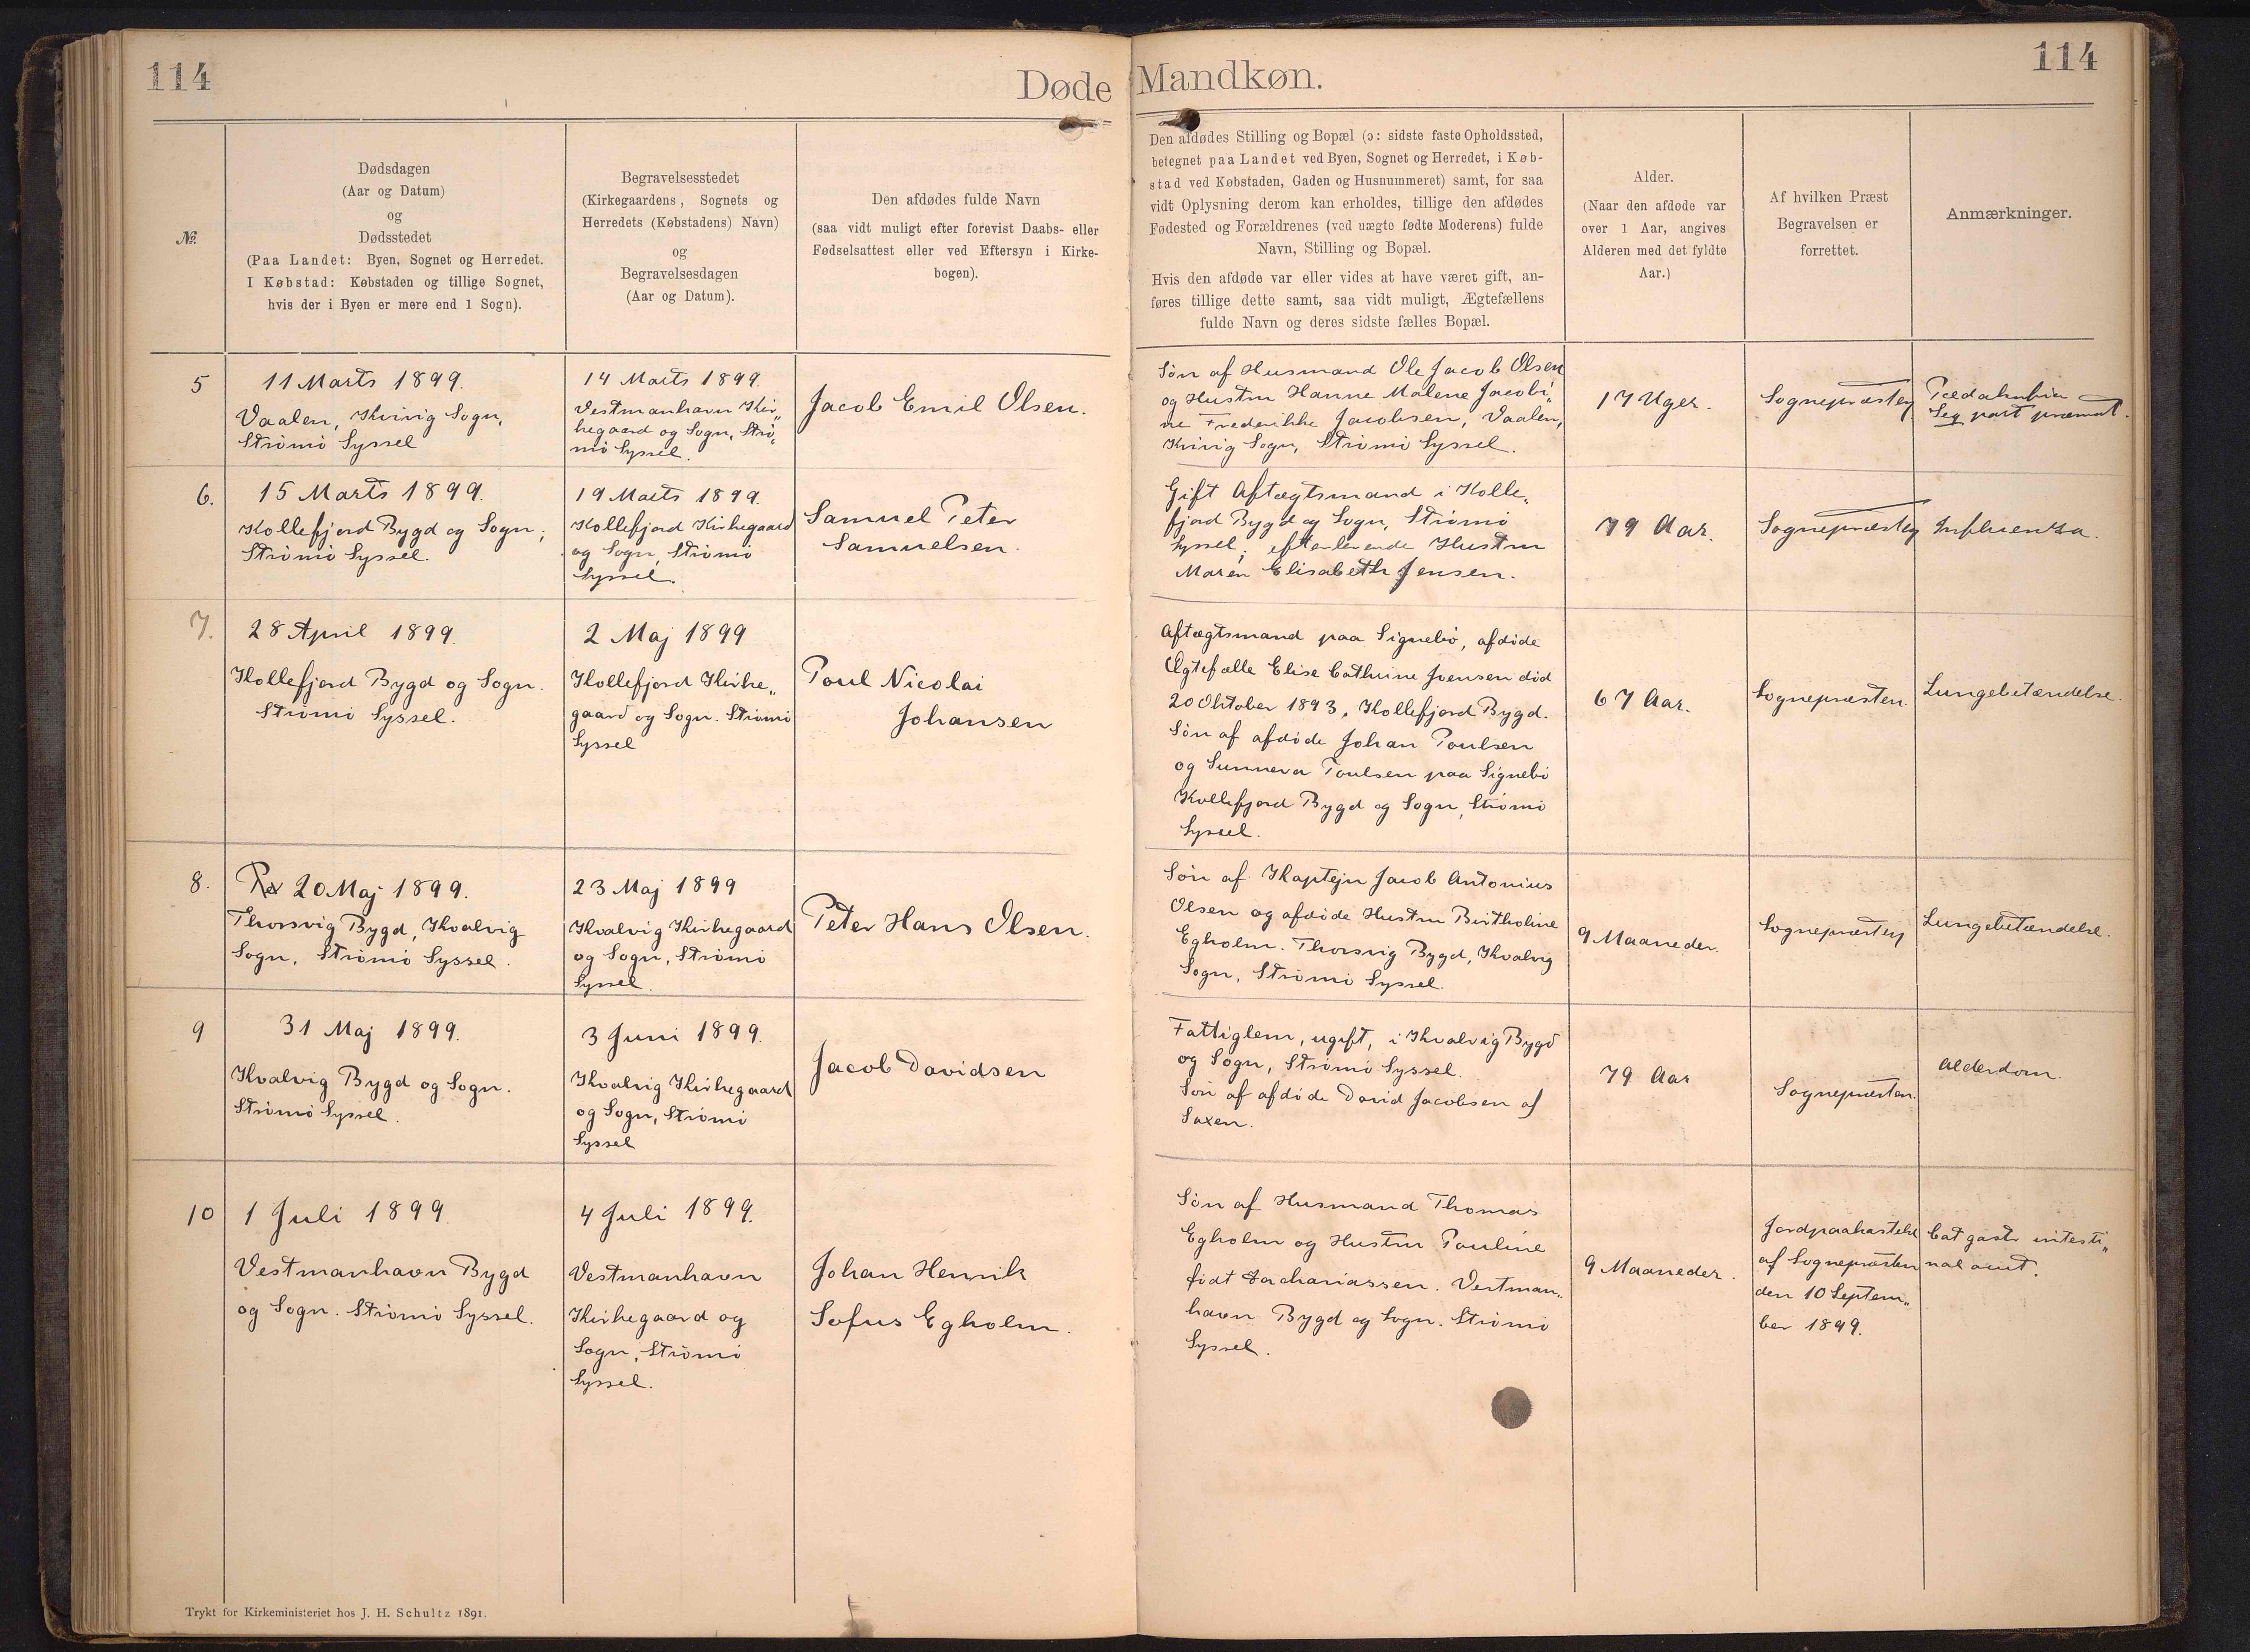 114
Døde Mandkøn.
114
№.
Dødsdagen
(Aar og Datum)
og
Dødsstedet
(Paa Landet: Byen, Sognet og Herredet.
I Købstad: Købstaden og tillige Sognet,
hvis der i Byen er mere end 1 Sogn).
Begravelsesstedet
(Kirkegaardens, Sognets og
Herredets (Købstadens) Navn)
og
Begravelsesdagen
(Aar og Datum).
Den afdødes fulde Navn
(saa vidt muligt efter forevist Daabs- eller
Fødselsattest eller ved Eftersyn i Kirke-
bogen).
Den afdødes Stilling og Bopæl (ɔ: sidste faste Opholdssted,
betegnet paa Landet ved Byen, Sognet og Herredet, i Køb-
stad ved Købstaden, Gaden og Husnummeret) samt, for saa
vidt Oplysning derom kan erholdes, tillige den afdødes
Fødested og Forældrenes (ved uægte fødte Moderens) fulde
Navn, Stilling og Bopæl.
Hvis den afdøde var eller vides at have været gift, an-
føres tillige dette samt, saa vidt muligt, Ægtefællens
fulde Navn og deres sidste fælles Bopæl.
Alder.
(Naar den afdøde var
over 1 Aar, angives
Alderen med det fyldte
Aar.)
Af hvilken Præst
Begravelsen er
forrettet.
Anmærkninger.
5
11 Marts 1899.
Vaalen, Kvivig Sogn,
Strömö Syssel
14 Marts 1899.
Vestmanhavn Kir„
kegaard og Sogn, Strö„
mö Syssel.
Jacob Emil Olsen.
Sön af Husmand Ole Jacob Olsen
og Hustru Hanne Malene Jacobi„
ne Frederikke Jacobsen, Vaalen,
Kvivig Sogn, Strömö Syssel.
17 Uger.
Sognepræsten
Seq part præmat.
6.
15 Marts 1899.
Kollefjord Bygd og Sogn,
Strömö Syssel.
19 Marts 1899.
Kollefjord Kirkegaard
og Sogn, Strömö
Syssel.
Samuel Peter
Samuelsen.
Gift Aftægtsmand i Kolle„
fjord Bygd og Sogn, Strömö
Syssel; efterlevende Hustru
Maren Elisabeth Jensen.
79 Aar.
Sognepræsten
Influenza.
7.
28 April 1899.
Kollefjord Bygd og Sogn.
Strömö Syssel.
2 Maj 1899
Kollefjord Kirke„
gaard og Sogn. Strömö
Syssel
Poul Nicolai
Johansen
Aftægtsmand paa Signebö, afdöde
Ægtefælle Elise Cathrine Joensen död
20 Oktober 1893, Kollefjord Bygd.
Sön af afdöde Johan Poulsen
og Sunneva Poulsen paa Signebö
Kollefjord Bygd og Sogn, Strömö
Syssel.
67 Aar.
Sognepræsten.
Lungebetændelse.
8.
20 Maj 1899.
Thorsvig Bygd, Kvalvig
Sogn, Strömö Syssel.
23 Maj 1899
Kvalvig Kirkegaard
og Sogn, Strömö
Syssel.
Peter Hans Olsen.
Sön af Kaptejn Jacob Antonius
Olsen og afdöde Hustru Bertholine
Egholm. Thorsvig Bygd, Kvalvig
Sogn, Strömö Syssel.
9 Maaneder.
Sognepræsten
Lungebetændelse.
9
31 Maj 1899.
Kvalvig Bygd og Sogn.
Strömö Syssel.
3 Juni 1899.
Kvalvig Kirkegaard
og Sogn, Strömö
Syssel
Jacob Davidsen
Fattiglem, ugift, i Kvalvig Bygd
og Sogn, Strömö Syssel.
Sön af afdöde David Jacobsen af
Saxen.
79 Aar
Sognepræsten.
Alderdom.
10
1 Juli 1899.
Vestmanhavn Bygd
og Sogn. Strömö Syssel.
4 Juli 1899.
Vestmanhavn
Kirkegaard og
Sogn, Strömö
Syssel.
Johan Henrik
Sofus Egholm.
Sön af Husmand Thomas
Egholm og Hustru Pauline
födt Zachariassen. Vestman„
havn Bygd og Sogn. Strömö
Syssel.
9 Maaneder.
Jordpaakastelse
af Sognepræsten
den 10 Septem„
ber 1899.
Cat gastr intesti„
nal acut.
Trykt for Kirkeministeriet hos J. H. Schultz 1891.